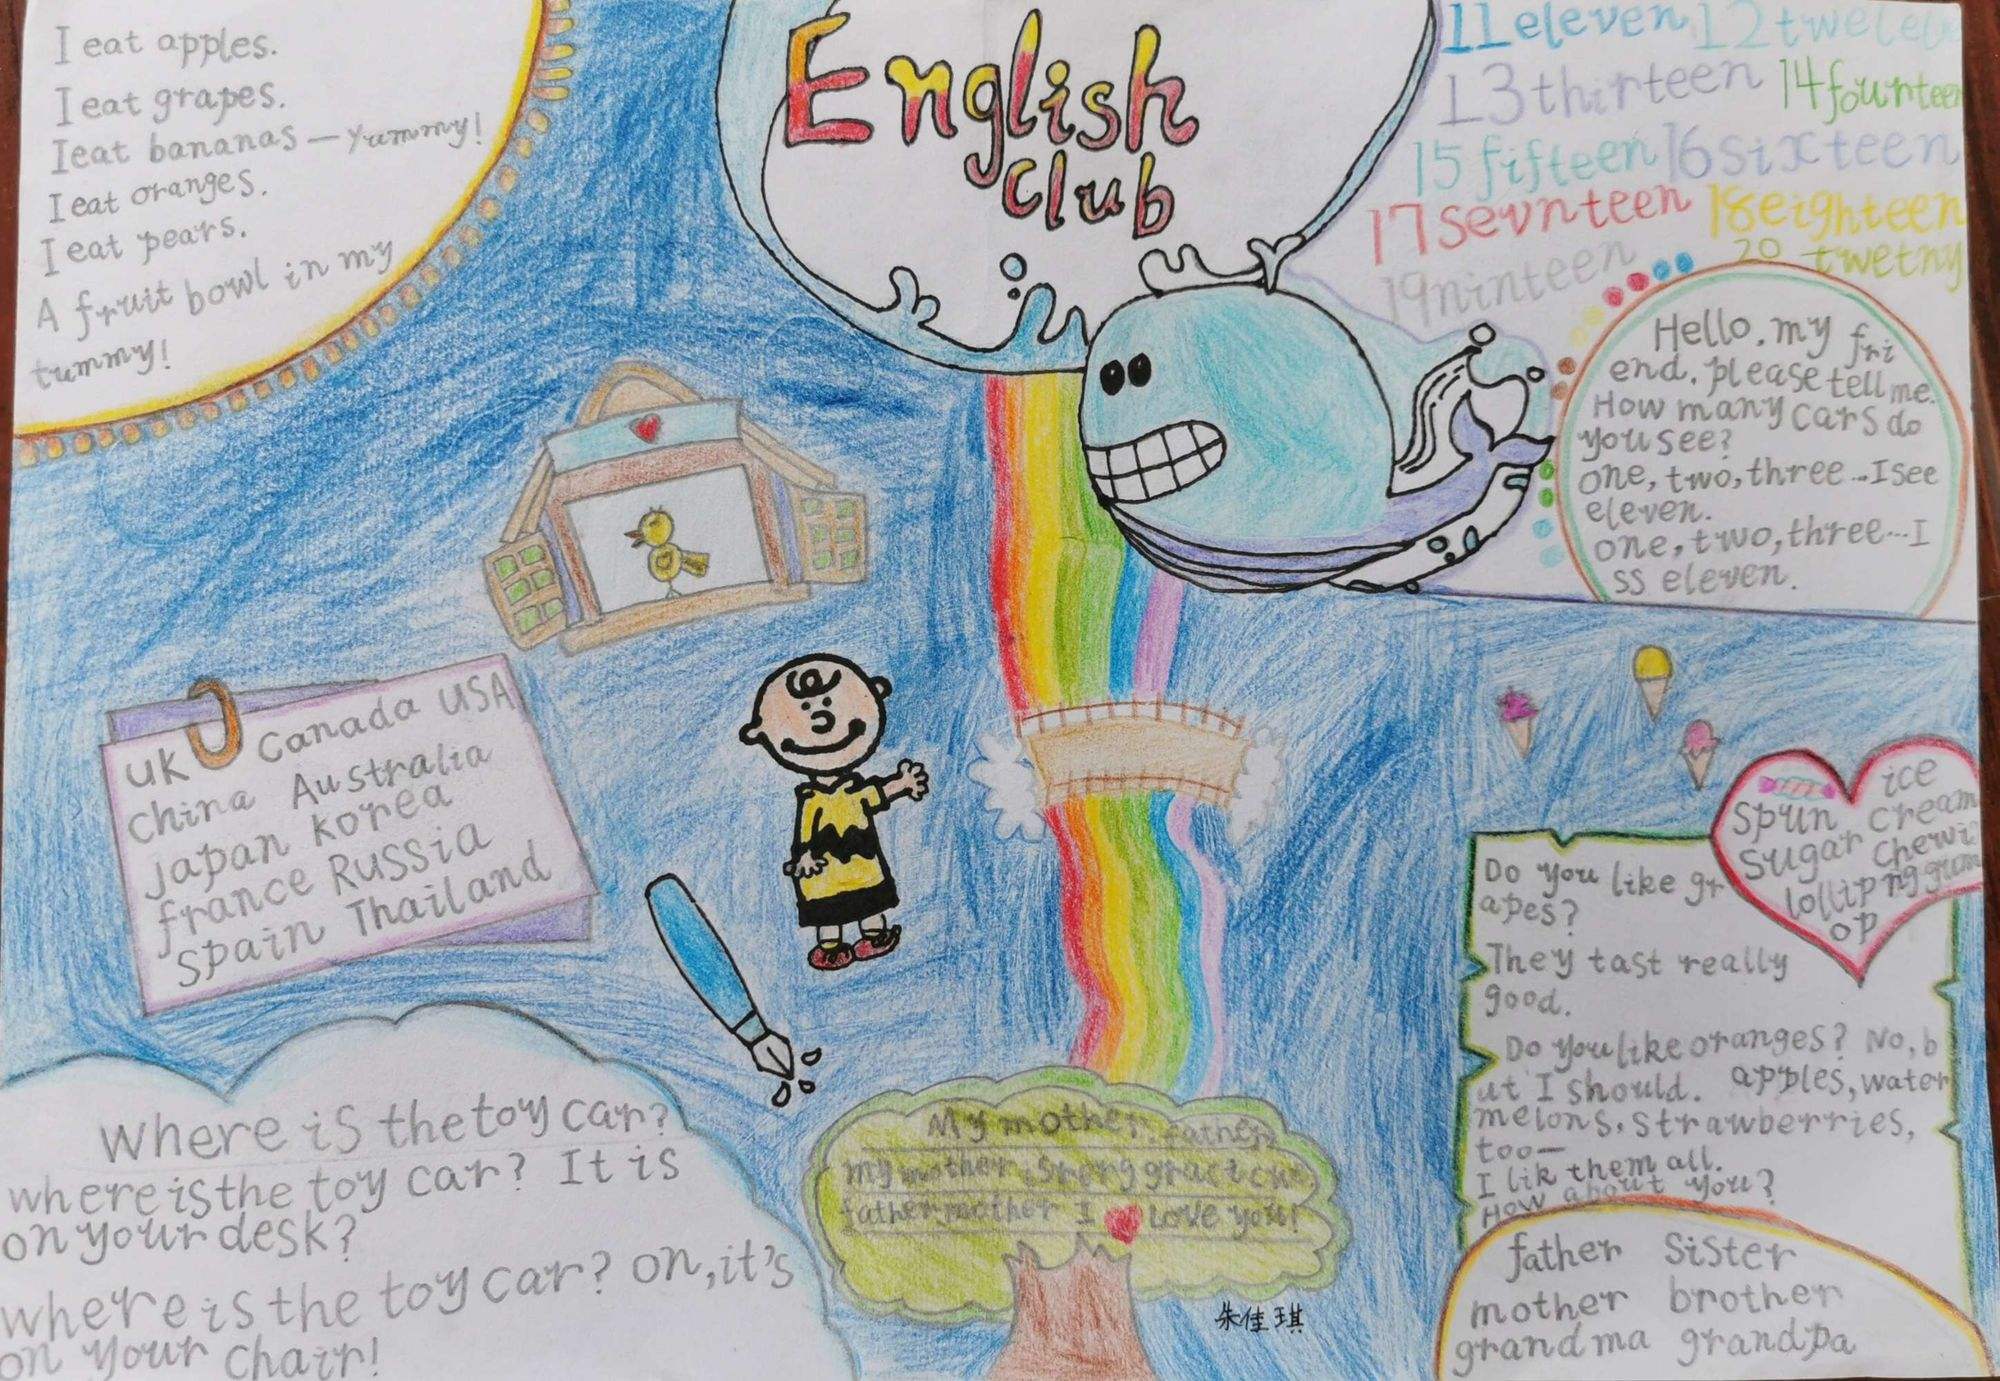 I eat apples.
I eat grapes.
I eat bananas — yummy!
I eat oranges.
I eat pears.
A fruit bowl in my
tummy!
English
club
11 eleven 12 twelelev
13 thirteen 14 fourteen
15 fifteen 16 sixteen
17 sevnteen 18 eighteen
19 ninteen 20 twetny
Hello, my fri
end. please tell me.
How many cars do
you see?
one, two, three ... I see
eleven.
one, two, three ... I
ss eleven.
UK Canada USA
China Australia
Japan Korea
france Russia
Spain Thailand
ice
spun cream
sugar chewi
lollip ng gum
op
Do you like gr
apes?
They tast really
good.
Do you like oranges? No, b
ut I should. apples, water
melons, strawberries,
too—
I lik them all.
How about you?
Where is the toy car?
where is the toy car? It is
on your desk?
where is the toy car? on, it's
on your chair!
My mother, father
my mother
father, mother I love you!
朱佳琪
father sister
mother brother
grandma grandpa